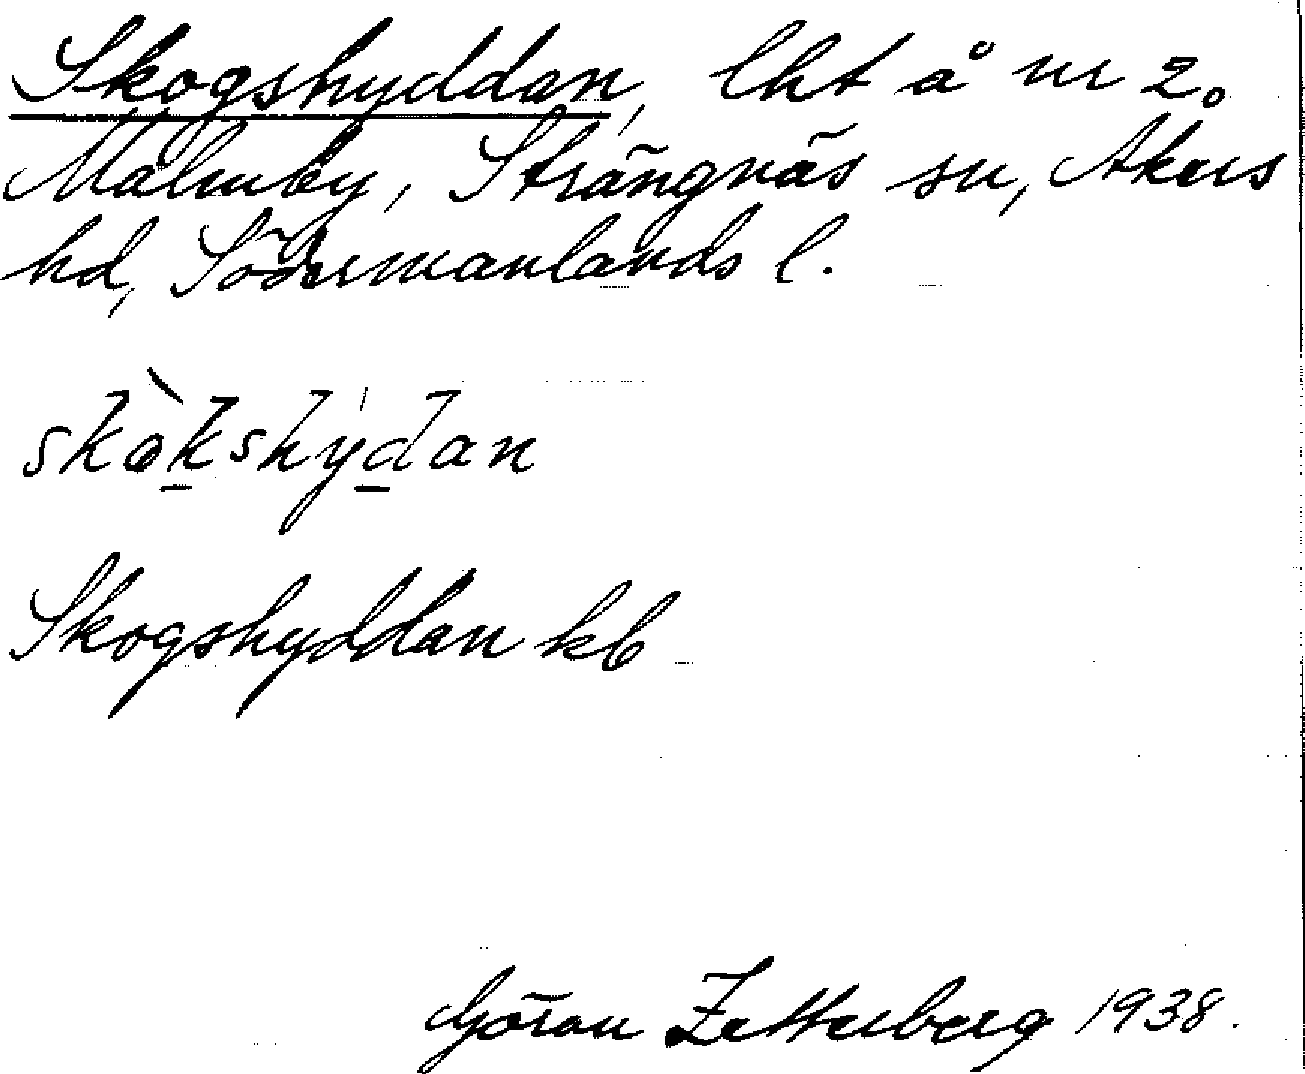 Skogshyddan, lht å nr 2.
Malmby, Strängnäs sn, Åkers
hd, Södermanlands l.
skòkshy̍dan
Skogshyddan kb
Göran Zetterberg 1938.